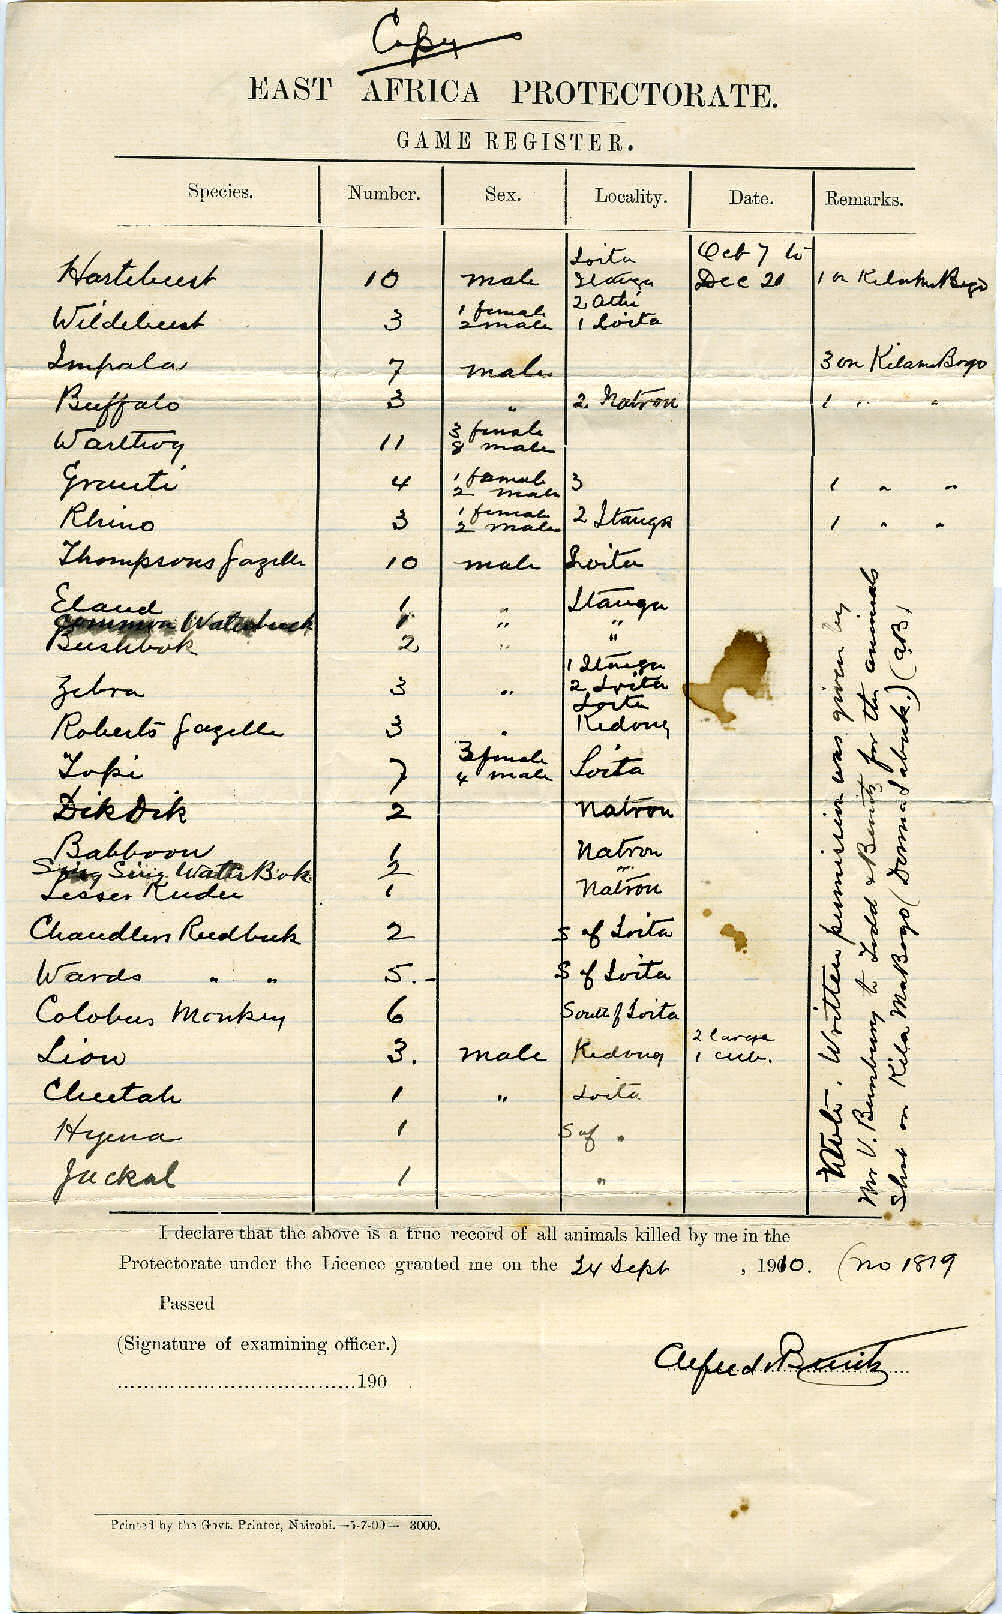 Copy
EAST AFRICA PROTECTORATE.
GAME REGISTER.
Species. Number. Sex. Locality. Date. Remarks.
Hartebeest 10 male Loita Itanga Oct 7 to Dec 20 1 on Kilima Bogo
Wildebeest 3 1 female 2 male 2 Athi 1 Loita
Impala 7 males 3 on Kilama Bogo
Buffalo 3 " 2 Natron 1 " "
Warthog 11 3 female 8 male
Granti 4 1 female 2 male 3 1 " "
Rhino 3 1 female 2 male 2 Itanga 1 " "
Thompsons Gazelle 10 male Loita
Eland 1 " Itanga
Common Waterbuck 1 " "
Bushbok 2 " "
Zebra 3 " 1 Itanga 2 Loita
Roberts Gazelle 3 " Loita Kedong
Topi 7 3 female 4 male Loita
Dik Dik 2 Natron
Babboon 1 Natron
Sing Sing Water Bok 2 "
Lesser Kudu 1 Natron
Chandlers Reedbuck 2 S of Loita
Wards " " 5.- S of Loita
Colobus Monkey 6 South of Loita
Lion 3. male Kedong 2 large 1 cub.
Cheetah 1 " Loita
Hyena 1 S of "
Jackal 1 "
Note. Written permission was given by
Mr V. Bunbury to Todd & Benitz for the animals
shot on Kila MaBogo (Donna Sabuk.) (AB)
I declare that the above is a true record of all animals killed by me in the
Protectorate under the Licence granted me on the 24 Sept , 1910. (no 1819
Passed
(Signature of examining officer.)
Alfred Benitz
190
Printed by the Govt. Printer, Nairobi.—5-7-09— 3000.